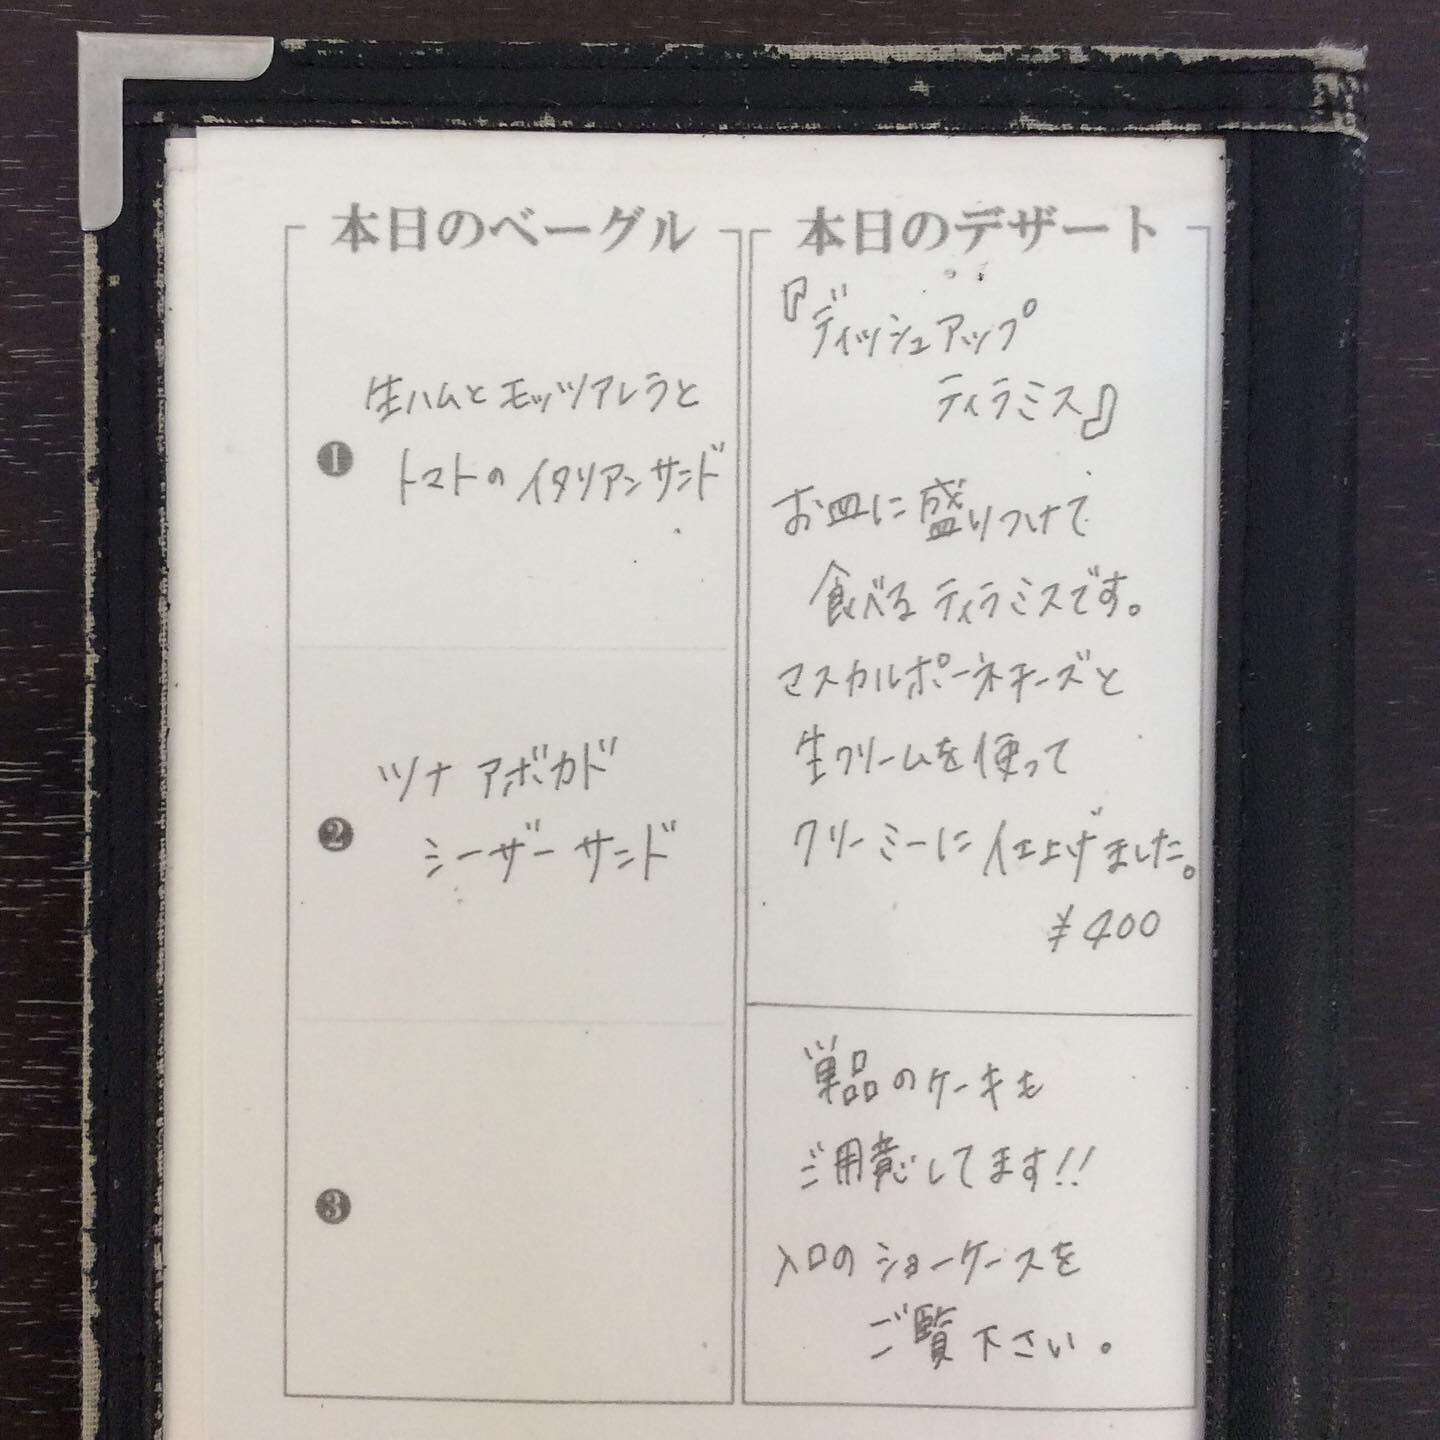 本日のベーグル
❶
生ハムとモッツアレラと
トマトのイタリアンサンド
❷
ツナ アボカド
シーザーサンド
❸
本日のデザート
『ディッシュアップ
ティラミス』
お皿に盛りつけて
食べるティラミスです。
マスカルポーネチーズと
生クリームを使って
クリーミーに仕上げました。
¥400
単品のケーキも
ご用意してます!!
入口のショーケースを
ご覧下さい。